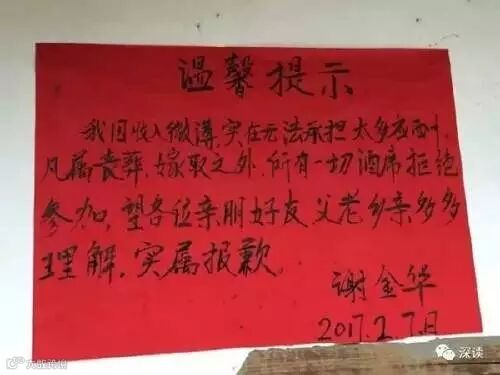 温馨提示
我因收入微薄,实在无法承担太多应酬,
凡属丧葬、嫁娶之外,所有一切酒席拒绝
参加,望各位亲朋好友父老乡亲多多
理解,实属报歉。
谢金华
2017.2.7日
深读